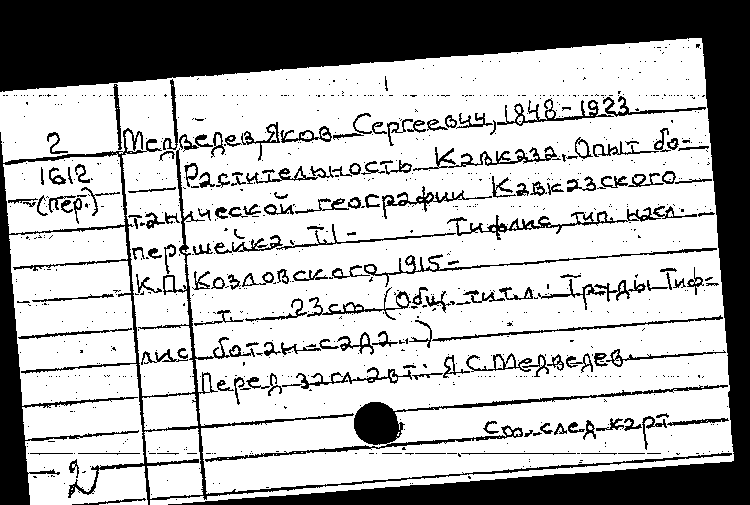 2
1612
(пер.)
Медведев, Яков Сергеевич, 1848-1923.
Растительность Кавказа. Опыт бо-
танической географии Кавказского
перешейка. Т.1- Тифлис, тип. насл.
К.П. Козловского, 1915-
т. 23cm (Общ. тит.л.: Труды Тиф-
лис ботан-сада...)
Перед загл. авт: Я.С. Медведев.
См. след карт
2